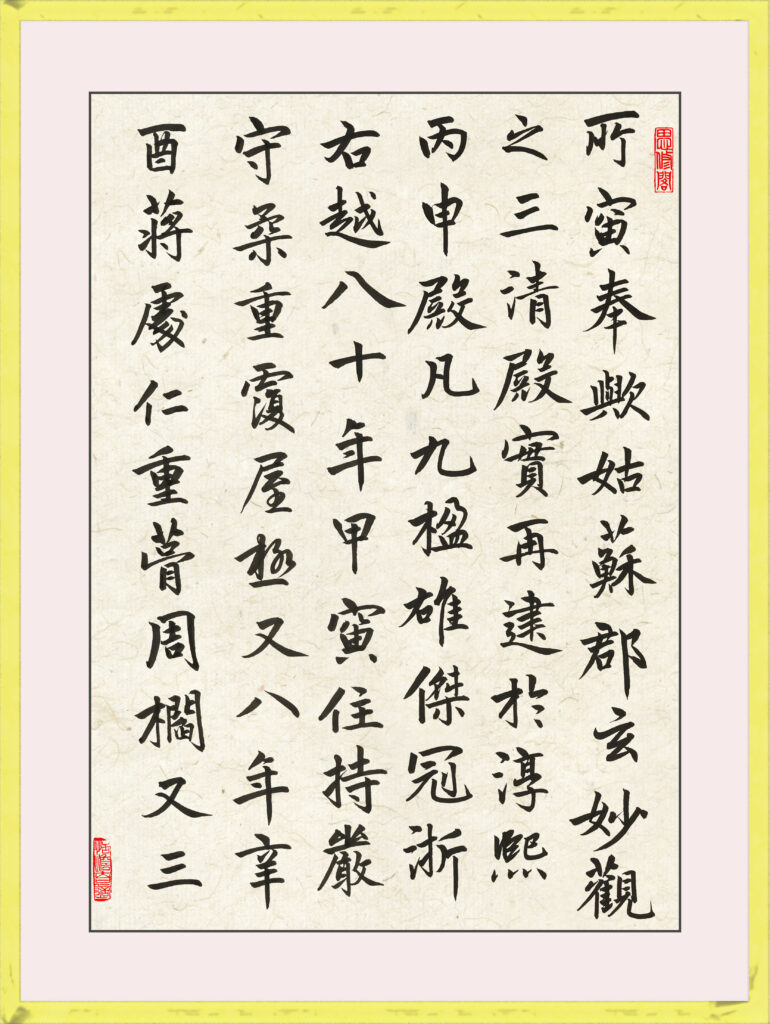 思修閣
所寅奉歟姑蘇郡玄妙觀
之三清殿實再建於淳熙
丙申殿凡九楹雄傑冠浙
右越八十年甲寅住持嚴
守柔重覆屋極又八年辛
酉蔣處仁重甍周櫩又三